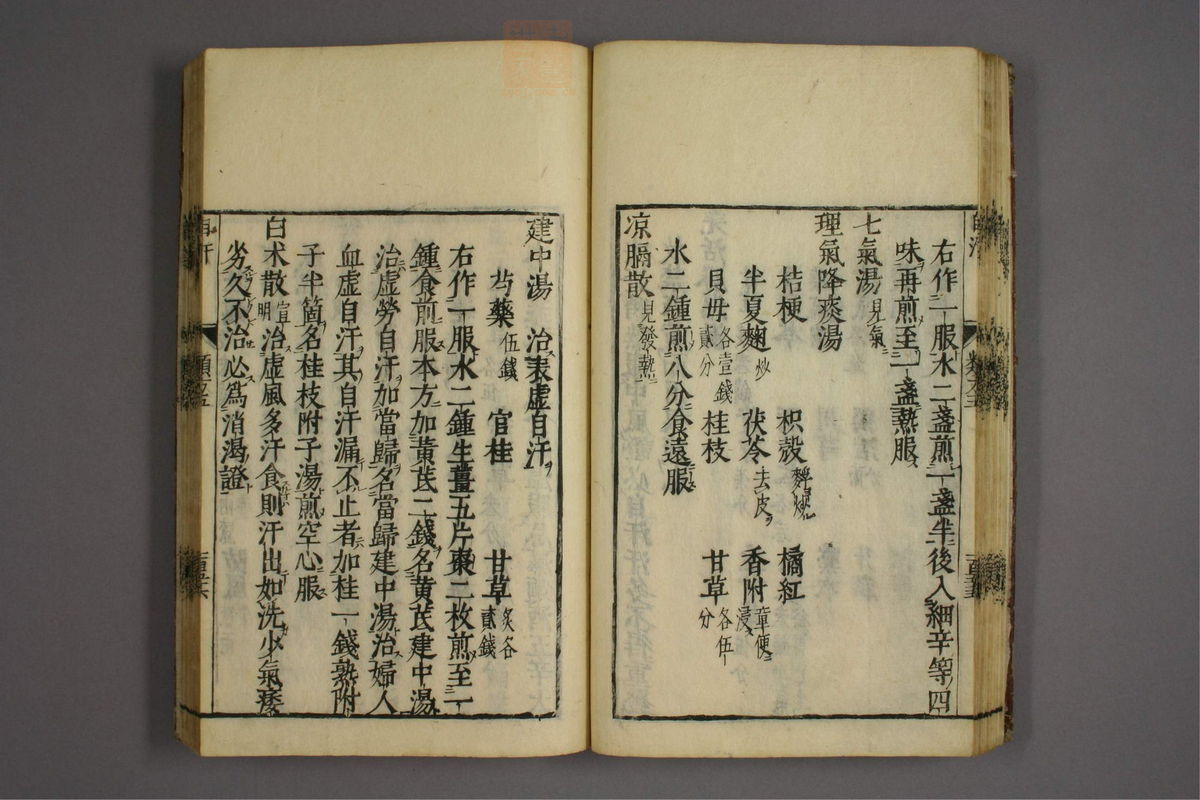 右作一服水二盞煎一盞半後入細辛等四
味再煎至一盞熱服
七氣湯見氣
理氣降痰湯
桔梗 枳殼麩燒 橘紅
半夏麴炒 茯苓去皮 香附童便浸
貝母各壹錢貳分 桂枝 甘草各伍分
水二鍾煎八分食遠服
凉膈散見發熱
建中湯 治表虛自汗
芍藥伍錢 官桂 甘草炙各貳錢
右作一服水二鍾生薑五片棗二枚煎至一
鍾食前服本方加黃芪二錢名黃芪建中湯
治虛勞自汗加當歸名當歸建中湯治婦人
血虛自汗其自汗漏不止者加桂一錢熟附
子半箇名桂枝附子湯煎空心服
白术散宣明治虛風多汗食則汗出如洗少氣痿
劣久不治必爲消渴證
自汗 類 五